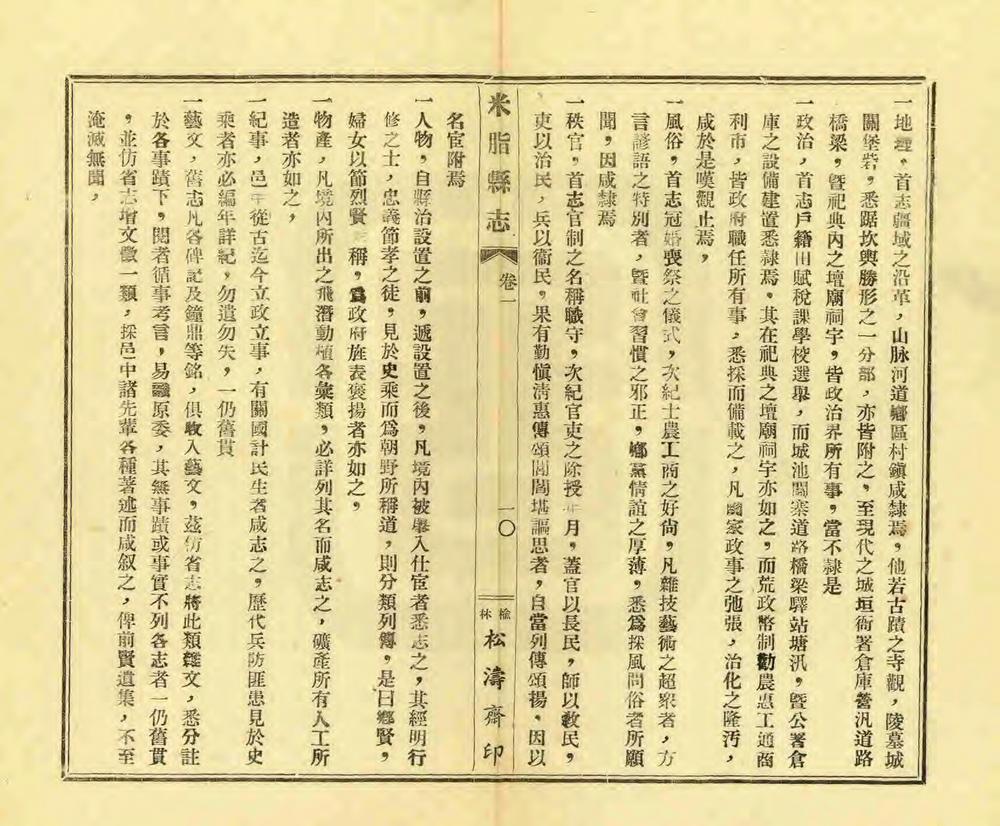 一地理，首志疆域之沿革，山脉河道鄉區村鎮咸隸焉，他若古蹟之寺觀，陵墓城
關堡砦，悉踞坎輿勝形之一分部，亦皆附之，至現代之城垣衙署倉庫營汛道路
橋梁，暨祀典內之壇廟祠宇，皆政治界所有事，當不隸是
一政治，首志戶籍田賦稅課學校選舉，而城池關寨道路橋梁驛站塘汛，暨公署倉
庫之設備建置悉隸焉，其在祀典之壇廟祠宇亦如之，而荒政幣制勸農惠工通商
利市，皆政府職任所有事，悉採而備載之，凡國家政事之弛張，治化之隆汚，
咸於是嘆觀止焉，
一風俗，首志冠婚喪祭之儀式，次紀士農工商之好尙，凡雜技藝術之超衆者，方
言諺語之特別者，暨社會習慣之邪正，鄉黨情誼之厚薄，悉爲採風問俗者所願
聞，因咸隸焉
一秩官，首志官制之名稱職守，次紀官吏之除授年月，蓋官以長民，師以敎民，
吏以治民，兵以衞民，果有勤愼淸惠傳頌閭閻堪謳思者，自當列傳頌揚，因以
名宦附焉
米脂縣志
卷一
一〇
榆林松濤齋印
一人物，自縣治設置之前，遞設置之後，凡境內被舉入仕宦者悉志之，其經明行
修之士，忠義節孝之徒，見於史乘而爲朝野所稱道，則分類列傳，是曰鄉賢，
婦女以節烈賢稱，爲政府旌表褒揚者亦如之，
一物產，凡境內所出之飛潛動植各彙類，必詳列其名而咸志之，礦產所有人工所
造者亦如之，
一紀事，邑中從古迄今立政立事，有關國計民生者咸志之，歷代兵防匪患見於史
乘者亦必編年詳紀，勿遺勿失，一仍舊貫
一藝文，舊志凡各碑記及鐘鼎等銘，俱收入藝文，茲仿省志將此類雜文，悉分註
於各事蹟下，閱者循事考言，易曬原委，其無事蹟或事實不列各志者一仍舊貫
，並仿省志增文徵一類，採邑中諸先輩各種著述而咸叙之，俾前賢遺集，不至
淹滅無聞，